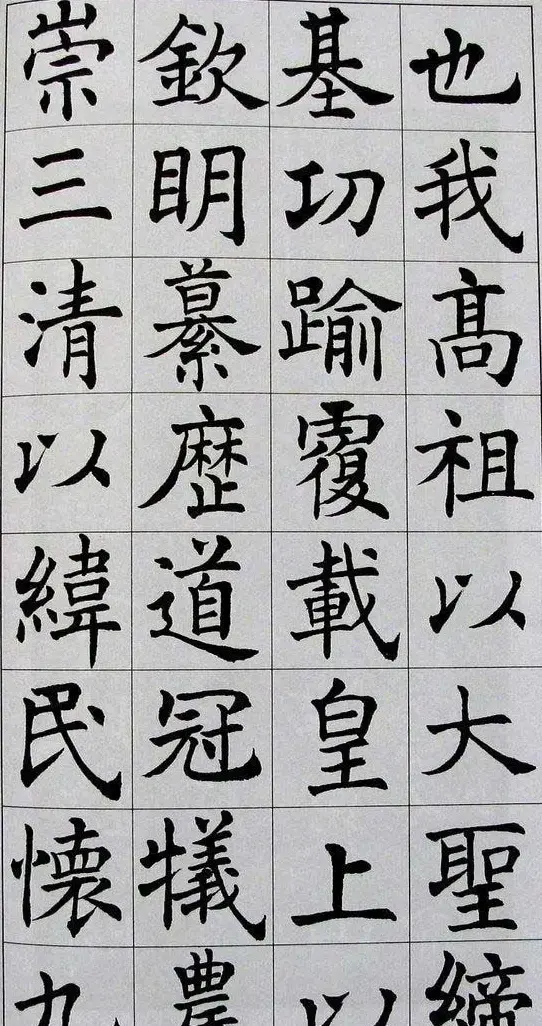 也我髙祖以大聖締
基功踰覆載皇上以
欽眀纂歷道冠犧農
崇三清以緯民懷九